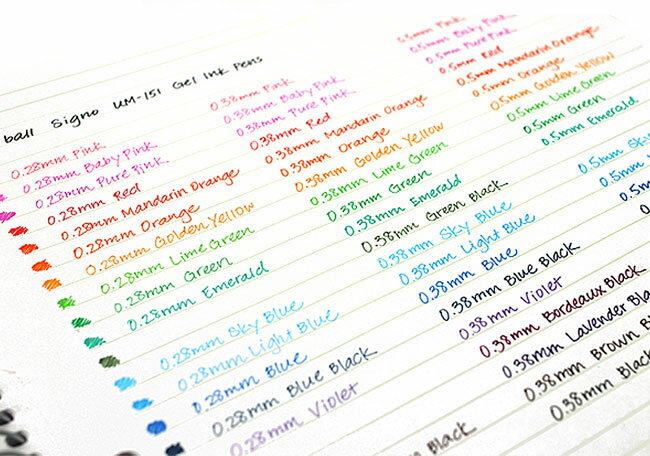 ball Signo UM-151 Gel Ink Pens
0.28mm Pink
0.28mm Baby Pink
0.28mm Pure Pink
0.28mm Red
0.28mm Mandarin Orange
0.28mm Orange
0.28mm Golden Yellow
0.28mm Lime Green
0.28mm Green
0.28mm Emerald
0.28mm Sky Blue
0.28mm Light Blue
0.28mm Blue
0.28mm Blue Black
0.28mm Violet
Black
0.38mm Pink
0.38mm Baby Pink
0.38mm Pure Pink
0.38mm Red
0.38mm Mandarin Orange
0.38mm Orange
0.38mm Golden Yellow
0.38mm Lime Green
0.38mm Green
0.38mm Emerald
0.38mm Green Black
0.38mm Sky Blue
0.38mm Light Blue
0.38mm Blue
0.38mm Blue Black
0.38mm Violet
0.38mm Bordeaux Black
0.38mm Lavender Bla
0.38mm Brown B
0.38mm Black
0.5mm Pink
0.5mm Baby Pink
0.5mm Pure Pink
0.5mm Red
0.5mm Mandarin Orange
0.5mm Orange
0.5mm Golden Yellow
0.5mm Lime Green
0.5mm Green
0.5mm Emerald
0.5mm Sk
0.5mm
0.5m